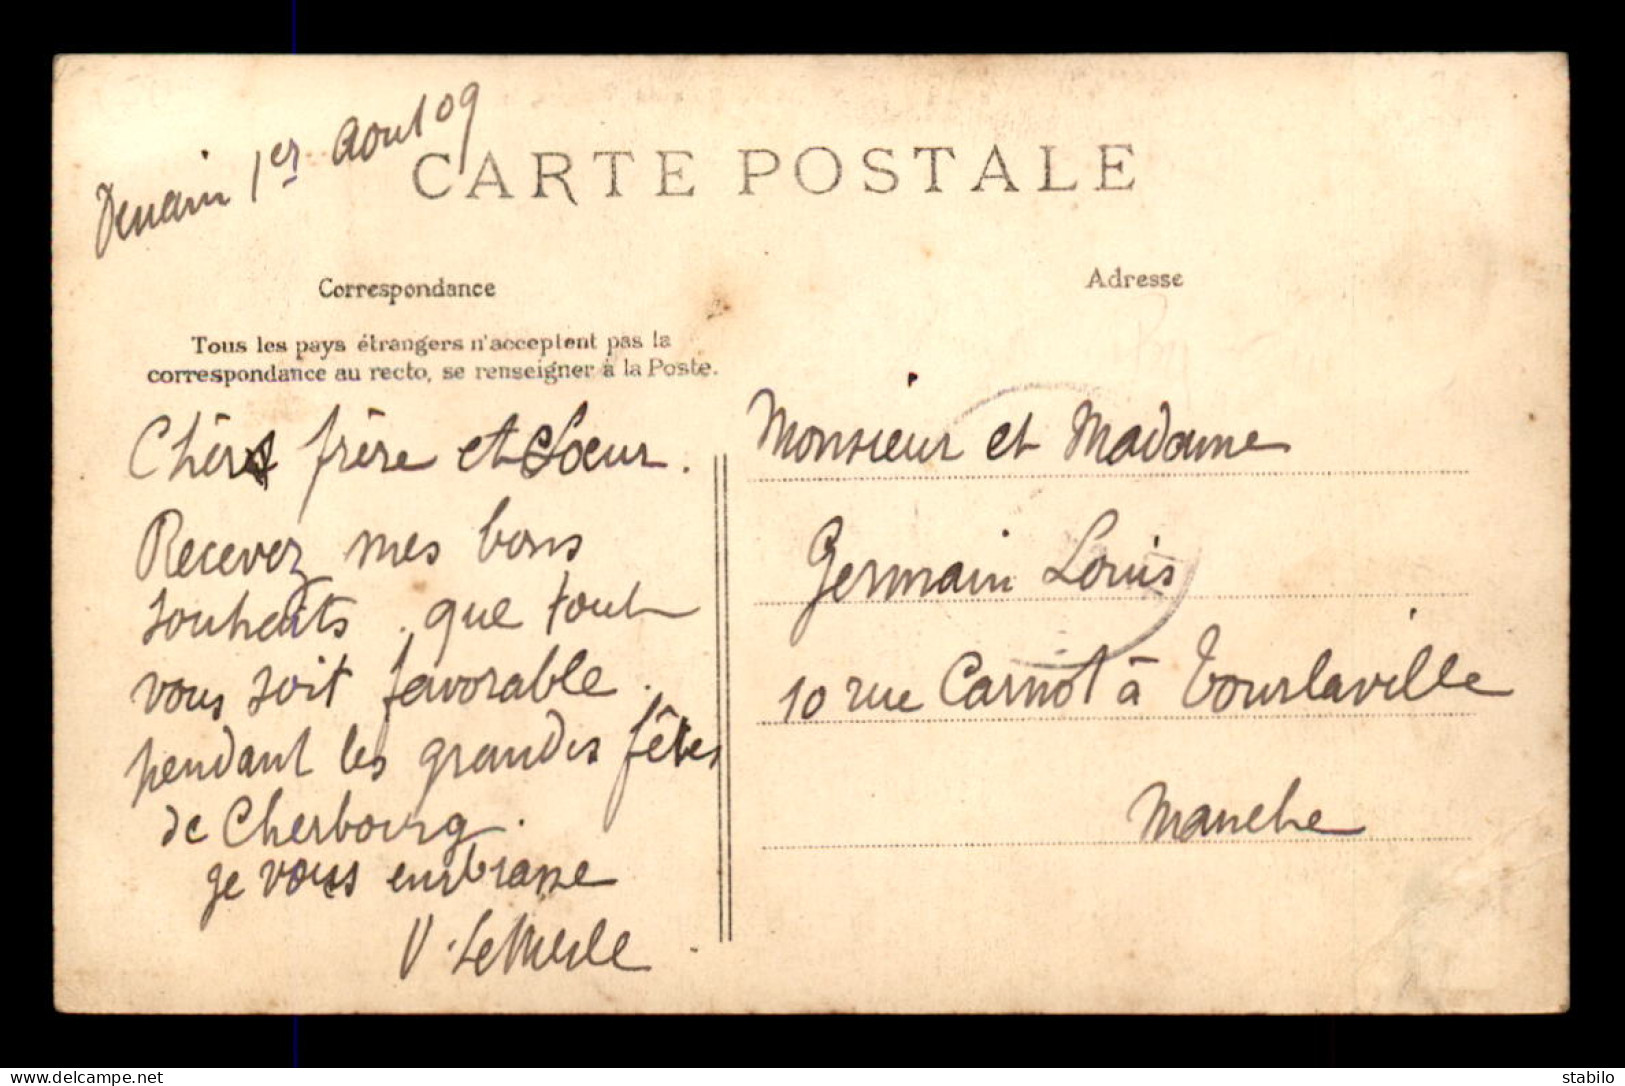 Denain 1er Aout 09
CARTE POSTALE
Correspondance
Tous les pays étrangers n'acceptent pas la
correspondance au recto, se renseigner à la Poste.
Chers frère et Soeur.
Recevez mes bons
souhaits. que tout
vous soit favorable.
pendant les grandes fêtes
de Cherbourg.
je vous embrasse
V. LeMesle
Adresse
Monsieur et Madame
Germain Louis
10 rue Carnot à Tourlaville
Manche
www.delcampe.net
stabilo